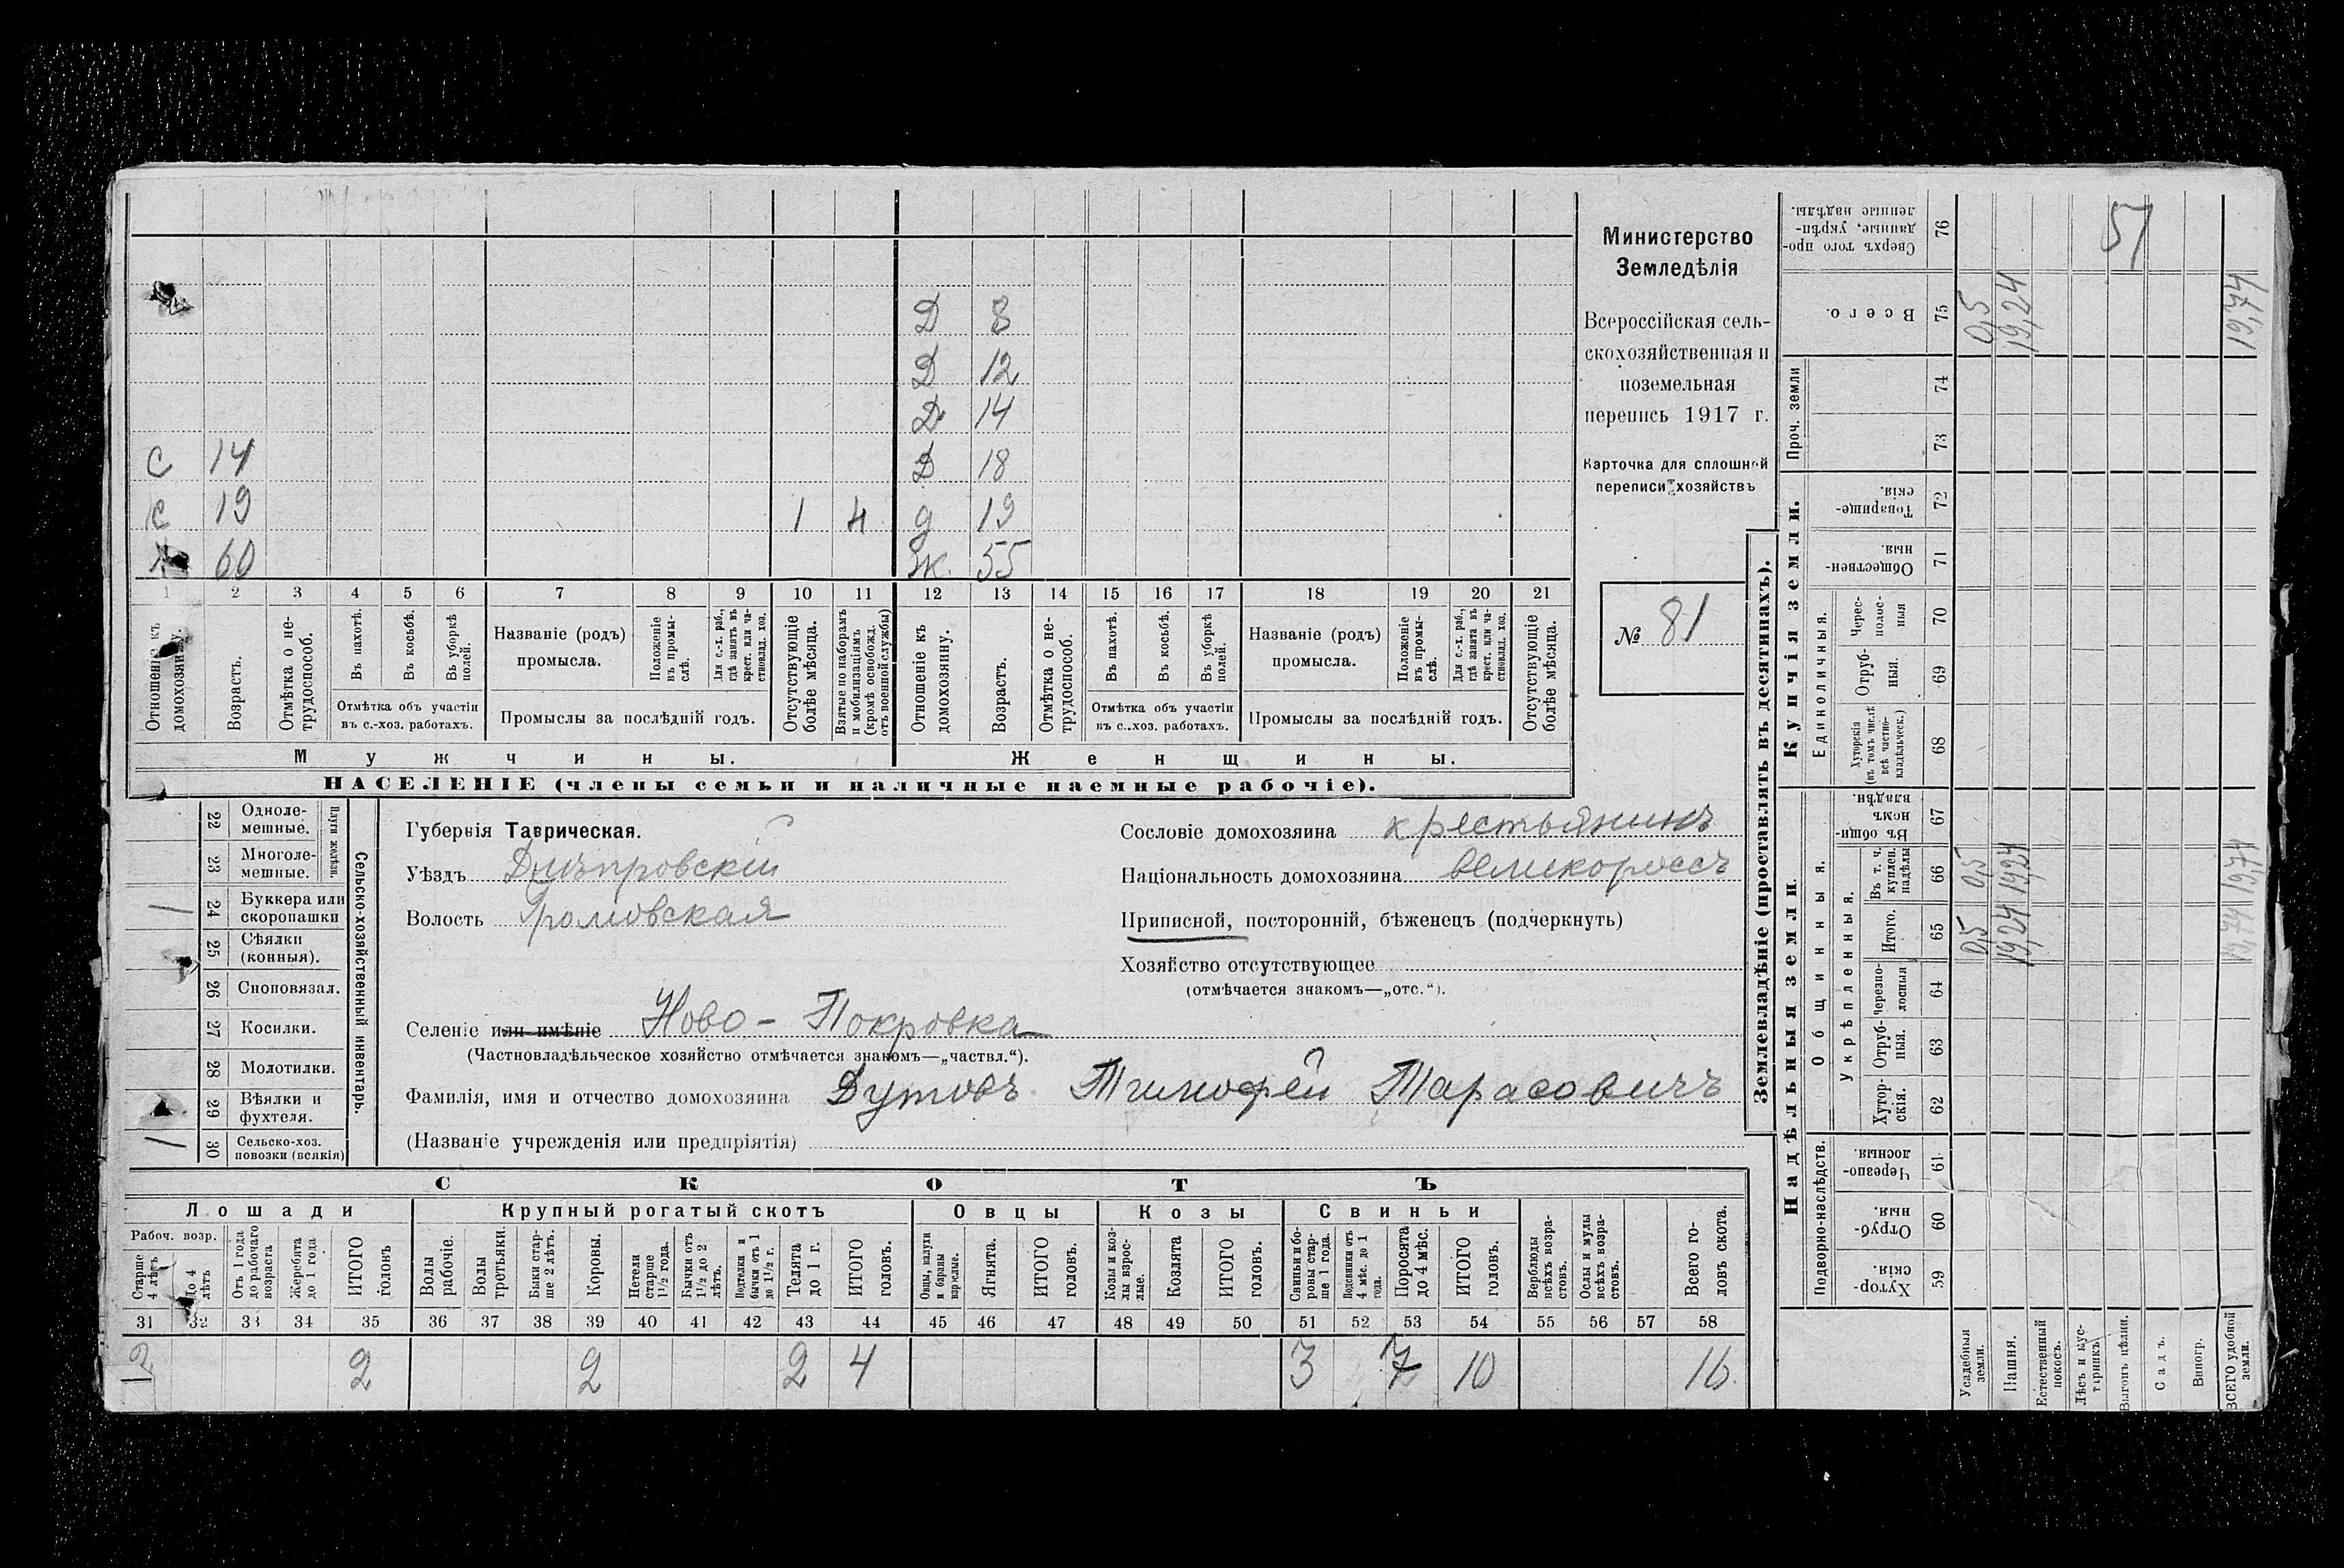 Д 8
Д 12
Д 14
С 14 Д 18
с 19 1 4 д 19
60 Ж. 55
1 2 3 4 5 6 7 8 9 10 11 12 13 14 15 16 17 18 19 20 21
Отношеніе къ домохозяину.
Возрастъ.
Отмѣтка о не-
трудоспособ.
Въ пахотѣ.
Въ косьбѣ.
Въ уборкѣ
полей.
Отмѣтка объ участіи
въ с.-хоз. работахъ.
Названіе (родъ)
промысла.
Положеніе
въ промы-
слѣ.
Для с.-х. раб.,
гдѣ занятъ въ
крест. или ча-
стновлад. хоз.
Промыслы за послѣдній годъ.
Отсутствующіе
болѣе мѣсяца.
Взятые по наборамъ
и мобилизаціямъ
(кромѣ освобожд.
отъ военной службы)
Отношеніе къ
домохозяину.
Возрастъ.
Отмѣтка о не-
трудоспособ.
Въ пахотѣ.
Въ косьбѣ.
Въ уборкѣ
полей.
Отмѣтка объ участіи
въ с.-хоз. работахъ.
Названіе (родъ)
промысла.
Положеніе
въ промы-
слѣ.
Для с.-х. раб.,
гдѣ занята въ
крест. или ча-
стновлад. хоз.
Промыслы за послѣдній годъ.
Отсутствующіе
болѣе мѣсяца.
Мужчины. Женщины.
НАСЕЛЕНІЕ (члены семьи и наличные наемные рабочіе).
Министерство
Земледѣлія
Всероссійская сель-
скохозяйственная и
поземельная
перепись 1917 г.
Карточка для сплошной
переписи хозяйствъ
№ 81
Сельско-хозяйственный инвентарь.
Плуги желѣзн.
22 Одноле-
мешные.
23 Многоле-
мешные.
1 24 Буккера или
скоропашки
25 Сѣялки
(конныя).
26 Сноповязал.
27 Косилки.
28 Молотилки.
29 Вѣялки и
фухтеля.
1 30 Сельско-хоз.
повозки (всякія)
Губернія Таврическая.
Уѣздъ Днѣпровскій
Волость Громовская
Сословіе домохозяина крестьянинъ
Національность домохозяина великороссъ
Приписной, посторонній, бѣженецъ (подчеркнуть)
Хозяйство отсутствующее
(отмѣчается знакомъ—„отс.“).
Селеніе или имѣніе Ново-Покровка
(Частновладѣльческое хозяйство отмѣчается знакомъ—„частвл.“).
Фамилія, имя и отчество домохозяина Дутовъ Тимофей Тарасовичъ
(Названіе учрежденія или предпріятія)
СКОТЪ
Лошади Крупный рогатый скотъ Овцы Козы Свиньи
Рабоч. возр.
Старше
4 лѣтъ
До 4
лѣтъ
Отъ 1 года
до рабочаго
возраста
Жеребята
до 1 года
ИТОГО
головъ
Волы
рабочіе.
Волы
третьяки.
Быки стар-
ше 2 лѣтъ.
Коровы.
Нетели
старше
1½ года.
Бычки отъ
1½ до 2
лѣтъ.
Подтелки и
бычки отъ 1
до 1½ г.
Телята
до 1 г.
ИТОГО
головъ.
Овцы, валухи
и бараны
взрослые.
Ягнята.
ИТОГО
головъ.
Козы и коз-
лы взрос-
лые.
Козлята
ИТОГО
головъ.
Свиньи и бо-
ровы стар-
ше 1 года.
Подсвинки отъ
4 мѣс. до 1
года.
Поросята
до 4 мѣс.
ИТОГО
головъ.
Верблюды
всѣхъ возра-
стовъ.
Ослы и мулы
всѣхъ возра-
стовъ.
Всего го-
ловъ скота.
31 32 33 34 35 36 37 38 39 40 41 42 43 44 45 46 47 48 49 50 51 52 53 54 55 56 57 58
2 2 2 2 4 3 7 10 16
Землевладѣніе (проставлять въ десятинахъ).
Надѣльныя земли.
Купчія земли.
Проч. земли
Подворно-наслѣдств.
Общинныя.
Укрѣпленныя.
Единоличныя.
Хутор-
скія. 59
Отруб-
ныя. 60
Черезпо-
лосныя 61
Хутор-
скія. 62
Отруб-
ныя. 63
Черезпо-
лосныя 64
Итого. 65
Въ т. ч.
куплен.
надѣлы 66
Въ общин-
номъ
владѣн. 67
Хуторскія
(въ томъ числѣ
всѣ частно-
владѣльческ.) 68
Отруб-
ныя. 69
Черес-
полос-
ныя 70
Обществен-
ныя. 71
Товарище-
скія. 72
73
74
Всего. 75
Сверхъ того про-
данные, укрѣп-
ленные надѣлы. 76
Усадебныя
земли. 0,5 0,5 0,5
Пашня. 19,24 19,24 19,24
Естественный
покосъ.
Лѣсъ и кус-
тарникъ
Выгонъ цѣлин. 51
Садъ.
Виногр.
ВСЕГО удобной
земли. 19,74 19,74 19,74